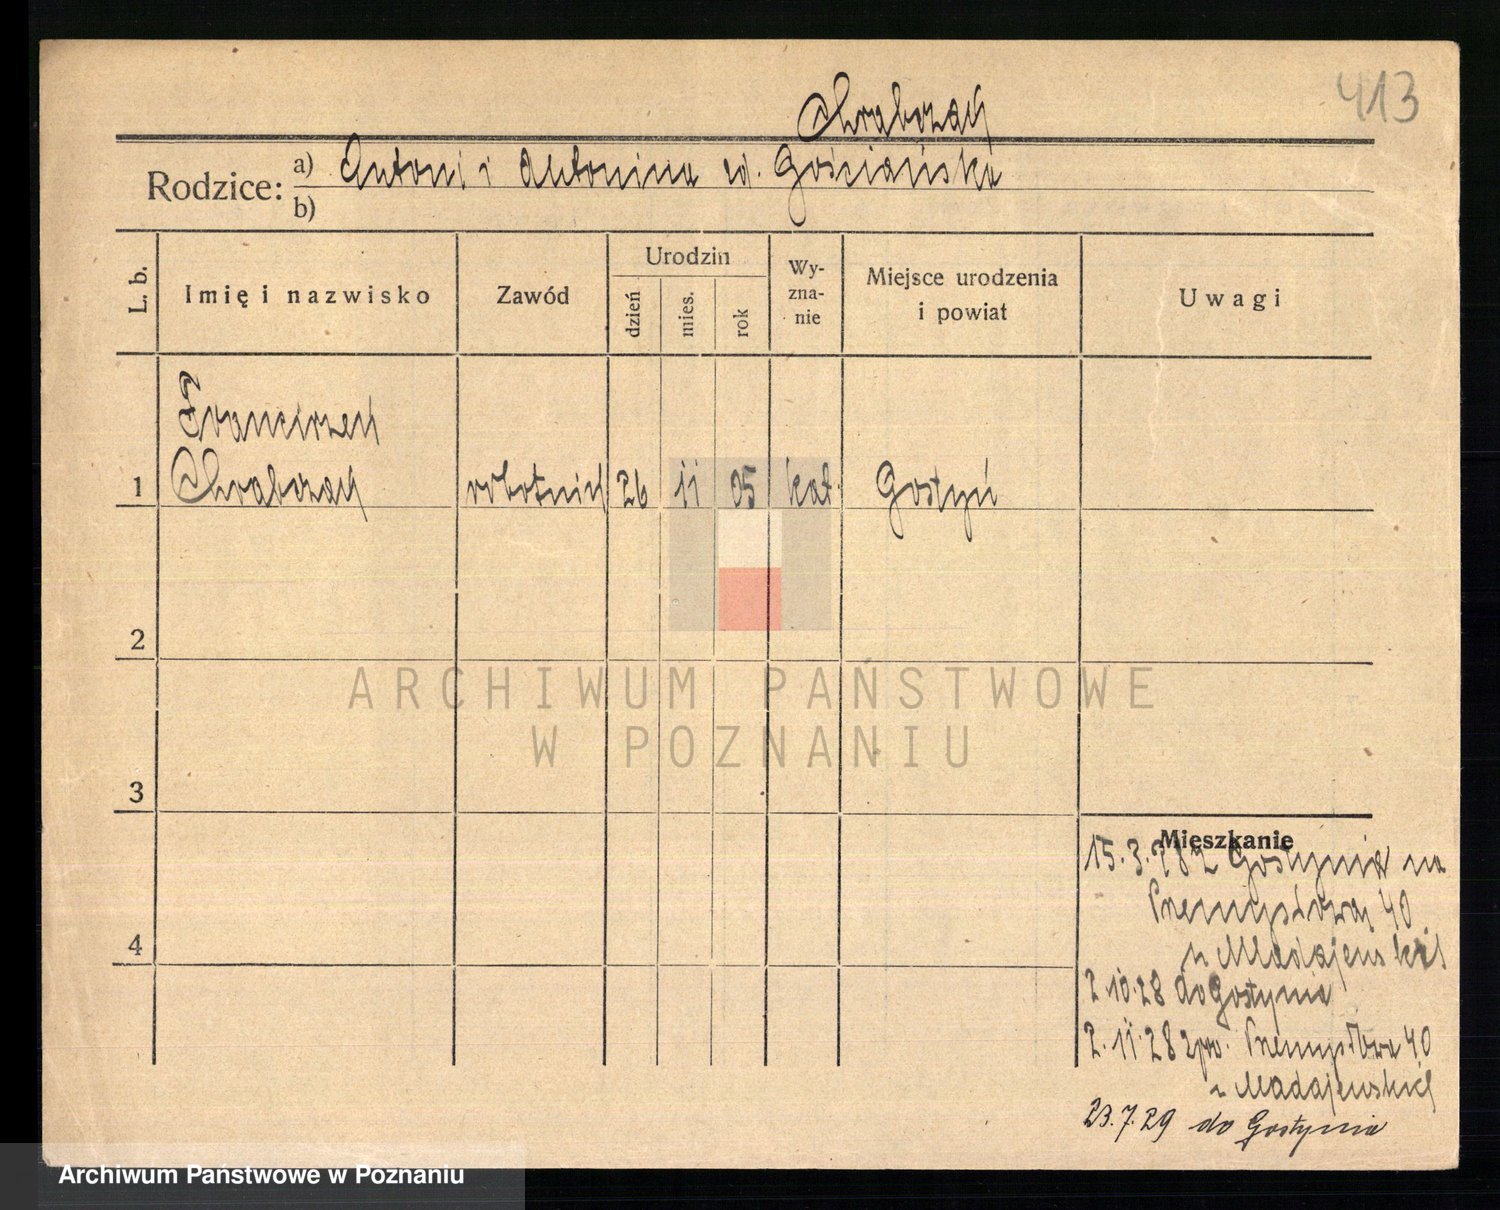 413
Chrabczak
Rodzice: a) Antoni i Antonina zd. Gościańska
b)
L. b.
Imię i nazwisko
Zawód
Urodzin
dzień
mies.
rok
Wy-
zna-
nie
Miejsce urodzenia
i powiat
Uwagi
Franciszek
1 Chrabczak robotnik 26 11 05 kat. Gostyń
2
3
4
ARCHIWUM PAŃSTWOWE
W POZNANIU
Mieszkanie
15.3.28 z Gostynia na
Przemysłową 40
u Madajewskich
2.10.28 do Gostynia
2.11.28 z po. Przemysłowa 40
u Madajewskich
23.7.29 do Gostynia
Archiwum Państwowe w Poznaniu